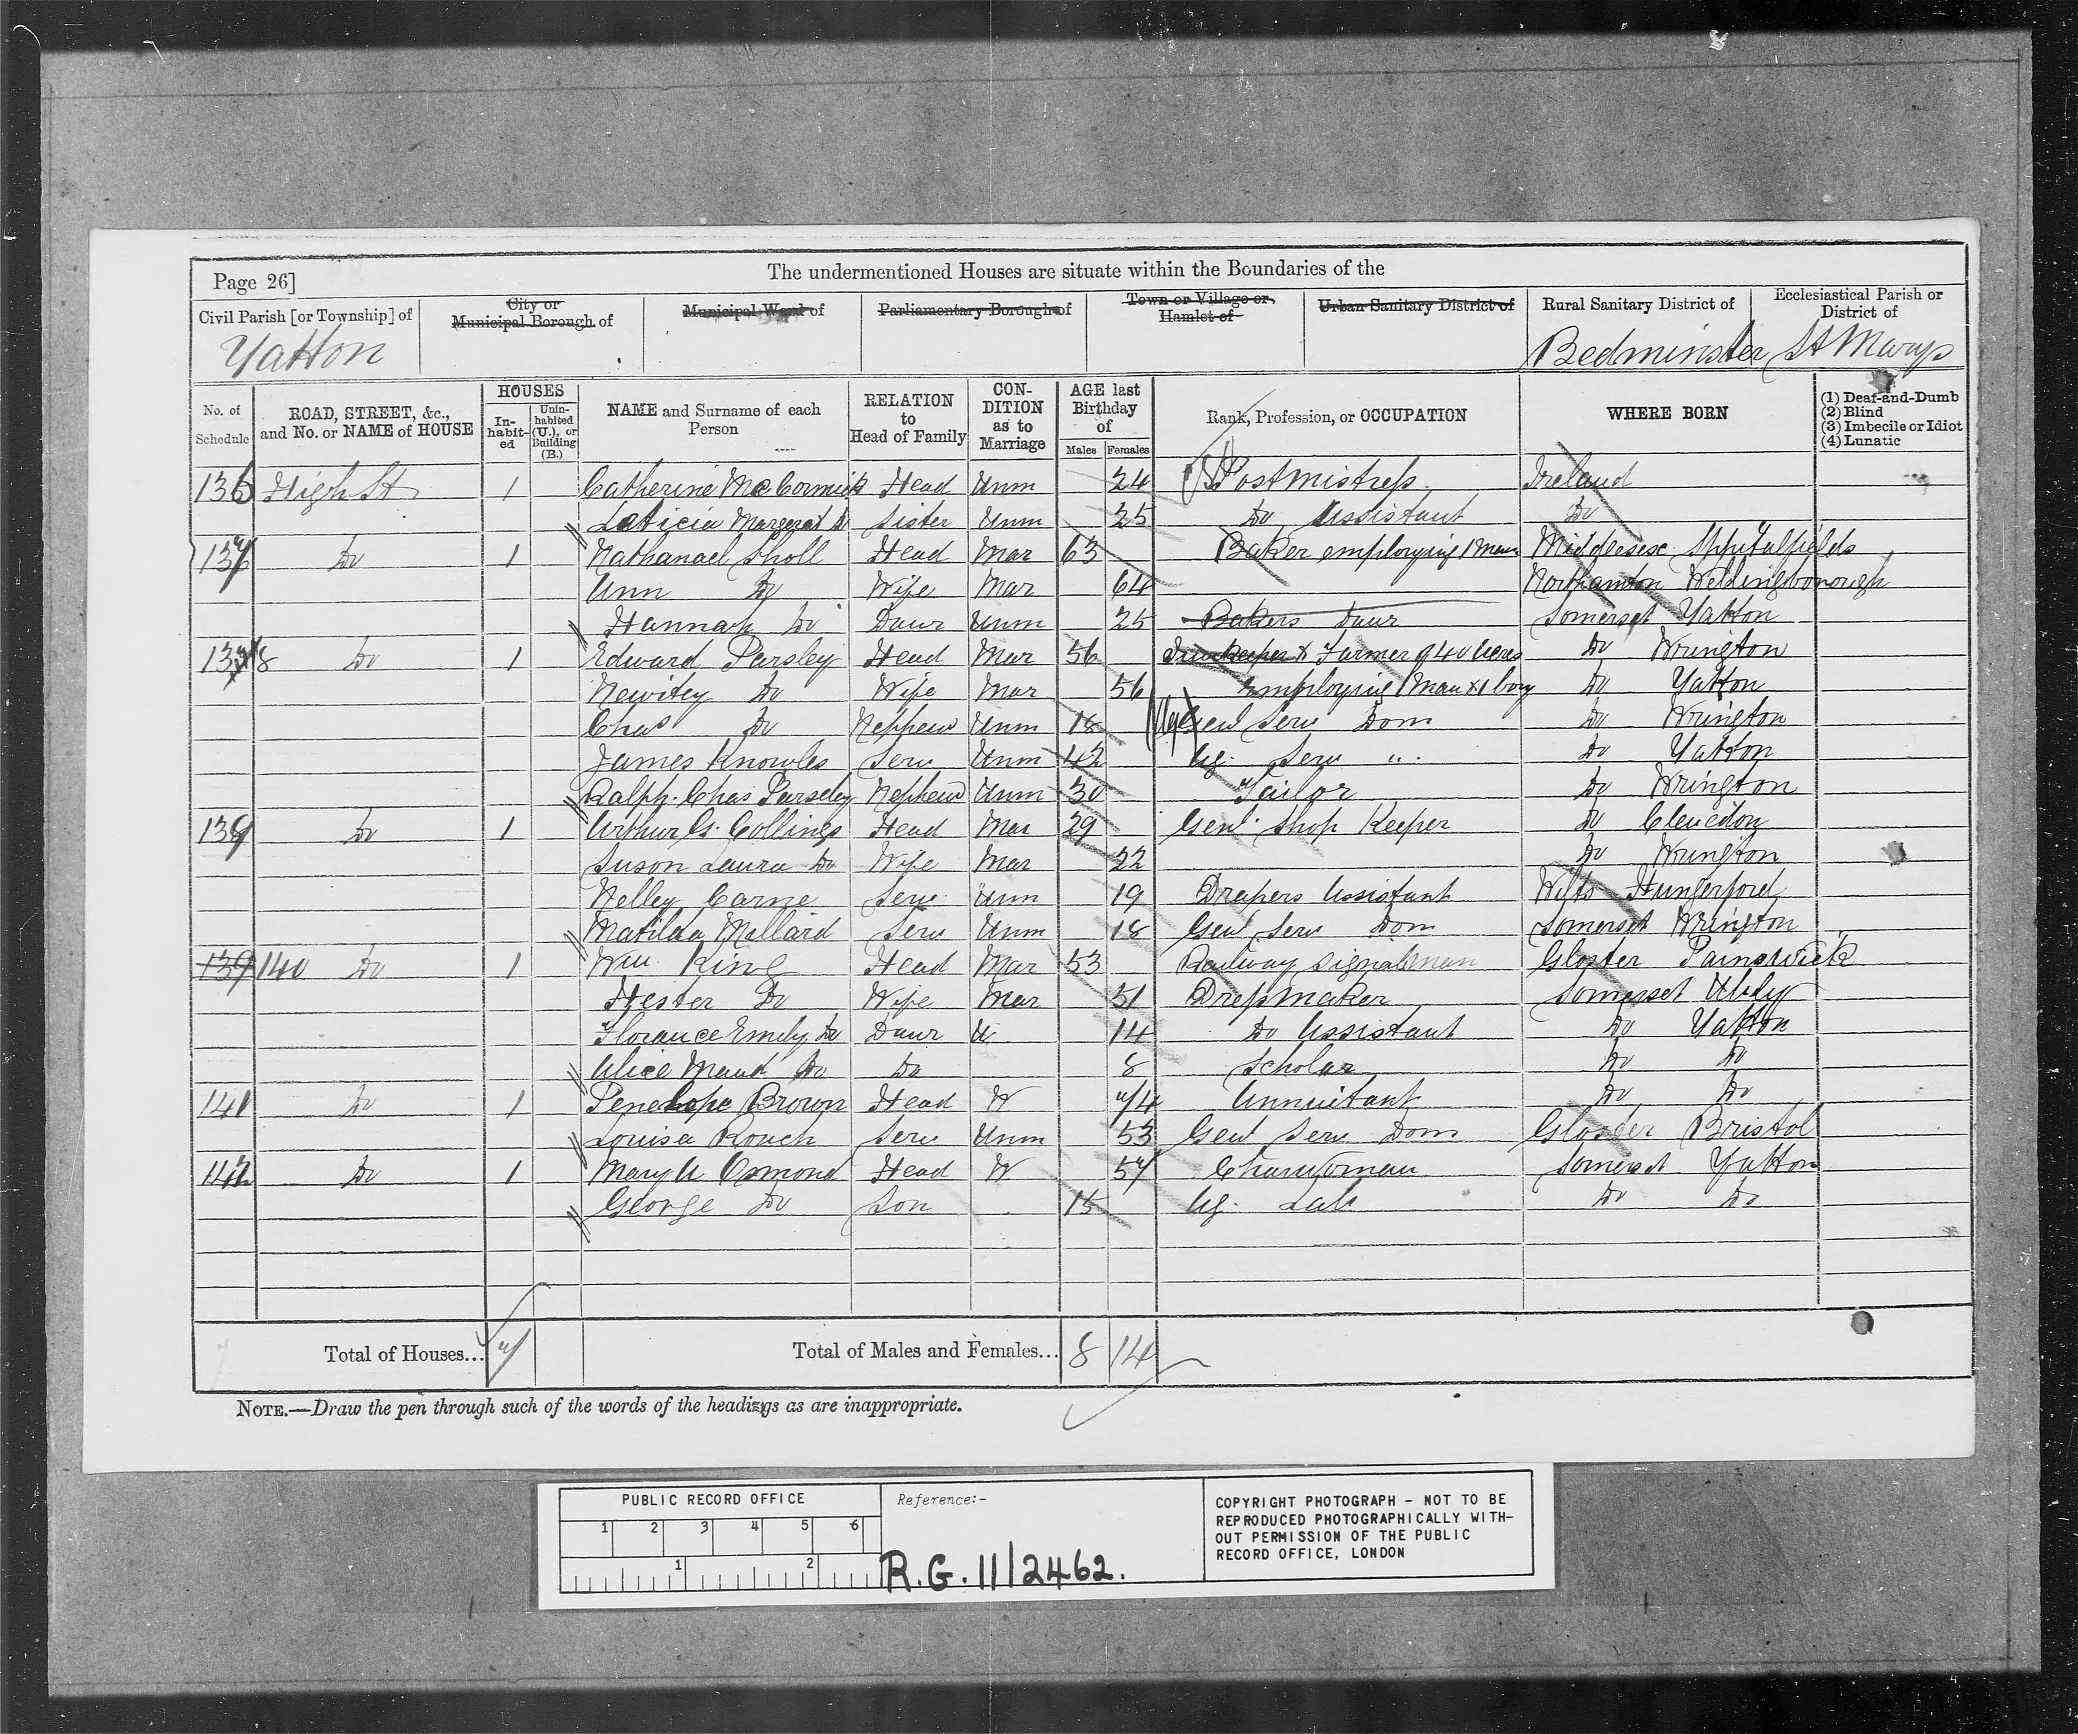 Page 26]
The undermentioned Houses are situate within the Boundaries of the
Civil Parish [or Township] of
City or Municipal Borough of
Municipal Ward of
Parliamentary Borough of
Town or Village or Hamlet of
Urban Sanitary District of
Rural Sanitary District of
Ecclesiastical Parish or District of
Yatton Bedminster St Marys
No. of Schedule
ROAD, STREET, &c., and No. or NAME of HOUSE
HOUSES
In-habit-ed
Unin-habited (U.), or Building (B.)
NAME and Surname of each Person
RELATION to Head of Family
CON-DITION as to Marriage
AGE last Birthday of
Males Females
Rank, Profession, or OCCUPATION
WHERE BORN
(1) Deaf-and-Dumb
(2) Blind
(3) Imbecile or Idiot
(4) Lunatic
136 High St 1 Catherine McCormick Head Unm 24 Postmistress Ireland
Leticia Margerat Do Sister Unm 25 Do Assistant Do
137 Do 1 Nathanael Sholl Head Mar 63 Baker employing 1 man Middlesex Spitalfields
Ann Do Wife Mar 64 Northamton Wellingborough
Hannah Do Daur Unm 25 Bakers Daur Somerset Yatton
138 Do 1 Edward Parsley Head Mar 56 Innkeeper & Farmer of 40 Acres Do Wrington
Do Wife Mar 56 Employing 1 Man & 1 boy Do Yatton
Chas Do Nephew Unm 18 Genl Serv Dom Do Wrington
James Knowles Serv Unm 42 Ag. Serv " Do Yatton
Ralph Chas Parsley Nephew Unm 30 Tailor Do Wrington
139 Do 1 Arthur G. Collings Head Mar 29 Genl Shop Keeper Do Clevedon
Suson Laura Do Wife Mar 22 Do Wrington
Nelley Carne Serv Unm 19 Drapers Assistant Wilts Hungerford
Matilda Mellard Serv Unm 18 Genl Serv Dom Somerset Wrington
139 140 Do 1 Wm King Head Mar 53 Railway Signalman Gloster Painswick
Hester Do Wife Mar 51 Dressmaker Somerset Ubley
Florance Emily Do Daur U 14 Do Assistant Do Yatton
Alice Maud Do Do 8 Scholar Do Do
141 Do 1 Penelope Brown Head W 74 Annuitant Do Do
Louisa Rouch Serv Unm 53 Genl Serv Dom Gloster Bristol
142 Do 1 Mary A Osmond Head W 57 Charwoman Somerset Yatton
George Do Son 15 Ag. Lab Do Do
Total of Houses... 7 Total of Males and Females... 8 14
NOTE.—Draw the pen through such of the words of the headings as are inappropriate.
PUBLIC RECORD OFFICE
1 2 3 4 5 6
1 2
Reference:-
R.G. 11/2462.
COPYRIGHT PHOTOGRAPH - NOT TO BE
REPRODUCED PHOTOGRAPHICALLY WITH-
OUT PERMISSION OF THE PUBLIC
RECORD OFFICE, LONDON